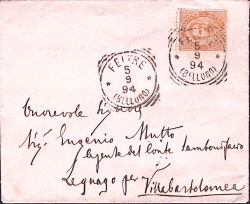 FELTRE
5
9
94
(BELLUNO)
5
9
94
(BELLUNO)
Onorevole Sig.
Sig. Eugenio Mutto
Agente del Conte Sambonifacio
Legnago per Villabartolomea